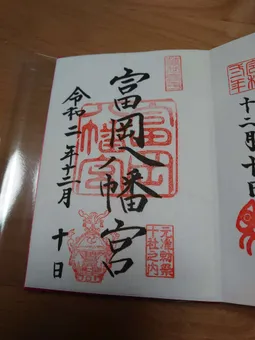 富岡八幡宮
富岡
八幡宮
元准勅祭
十社之内
令和二年十二月
十日
十二月十日